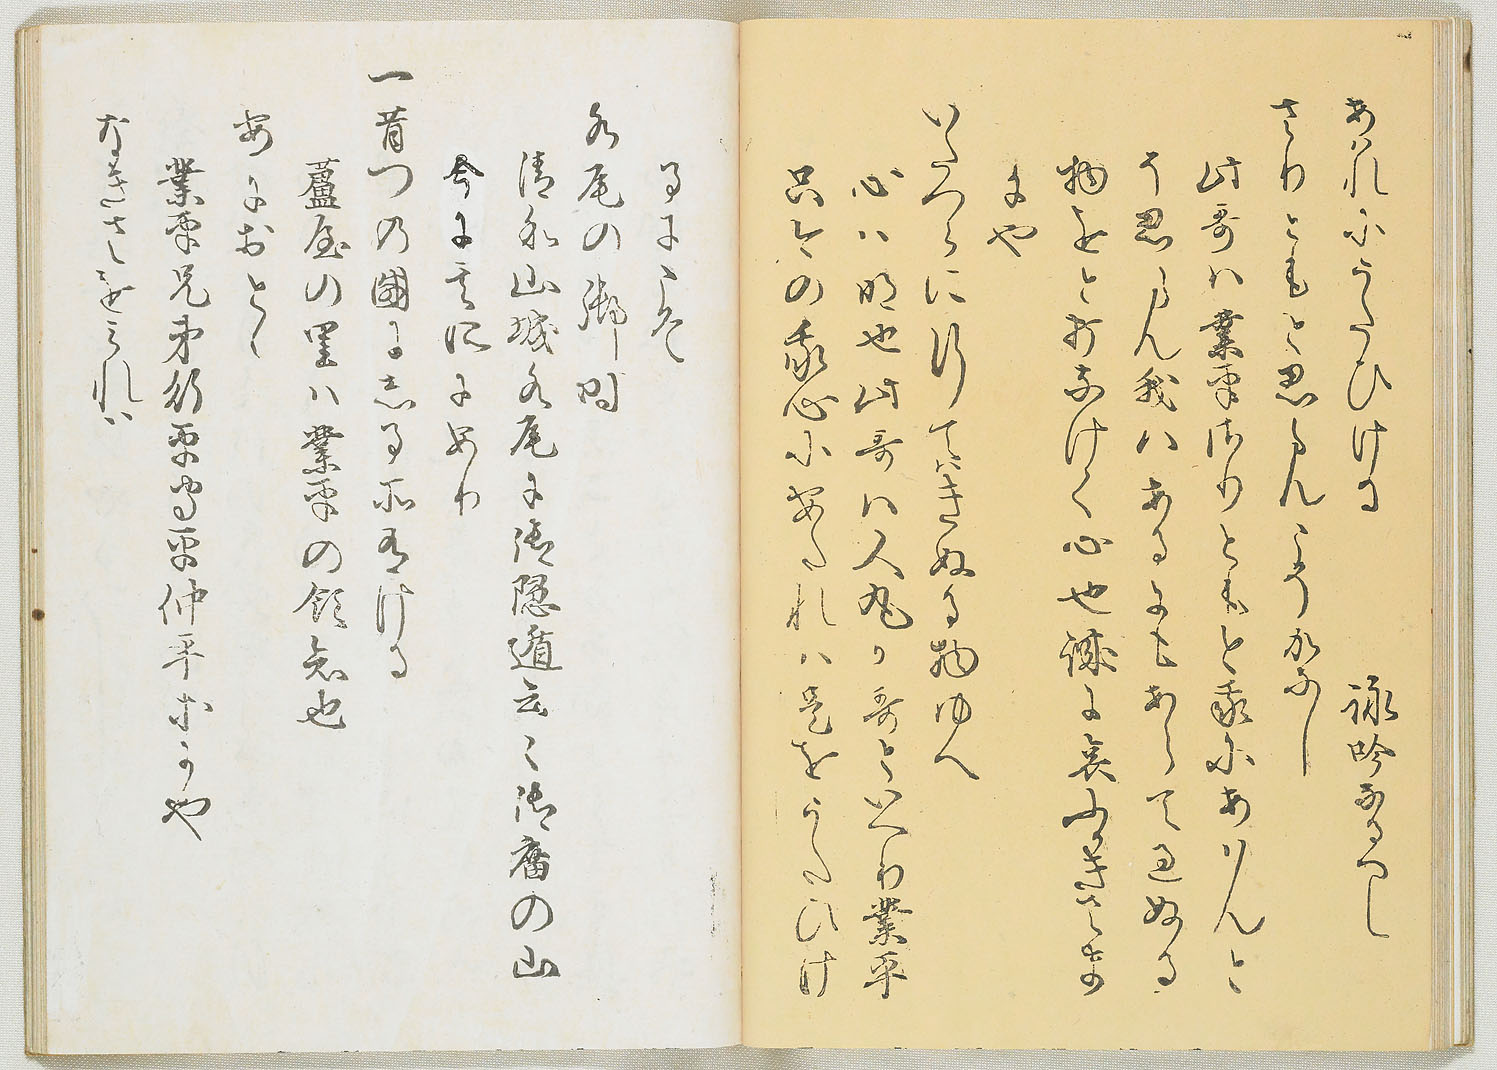 あはれにうたひける　詠吟なるへし
さりともと思ふらんこそかなしけれ
此哥ハ業平さりともと我にありけんと
そ思ふらん我ハあるにもあらて過ぬる
物をと打なけく心也誠に哀ふかきさま
にや
いたつらに行てハきぬる物ゆへ
心ハ明也此哥ハ人丸か哥といへり業平
只今の我心に叶たれハ是をうたひけ
るにこそ
水尾の御時
清和山城水尾に御隠遁云々御廟の山
今に其所にあり
一 昔つの國にしる所有ける
蘆屋の里ハ業平の領知也
あにおとゝ
業平兄弟行平守平仲平等にや
なきさを見れハ